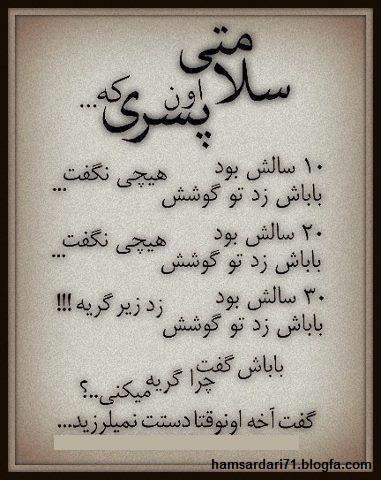 سلامتی
اون پسری که...
۱۰ سالش بود
باباش زد تو گوشش هیچی نگفت...
۲۰ سالش بود
باباش زد تو گوشش هیچی نگفت...
۳۰ سالش بود
باباش زد تو گوشش زد زیر گریه !!!
باباش گفت
چرا گریه میکنی..؟
گفت آخه اونوقتا دستت نمیلرزید...
hamsardari71.blogfa.com